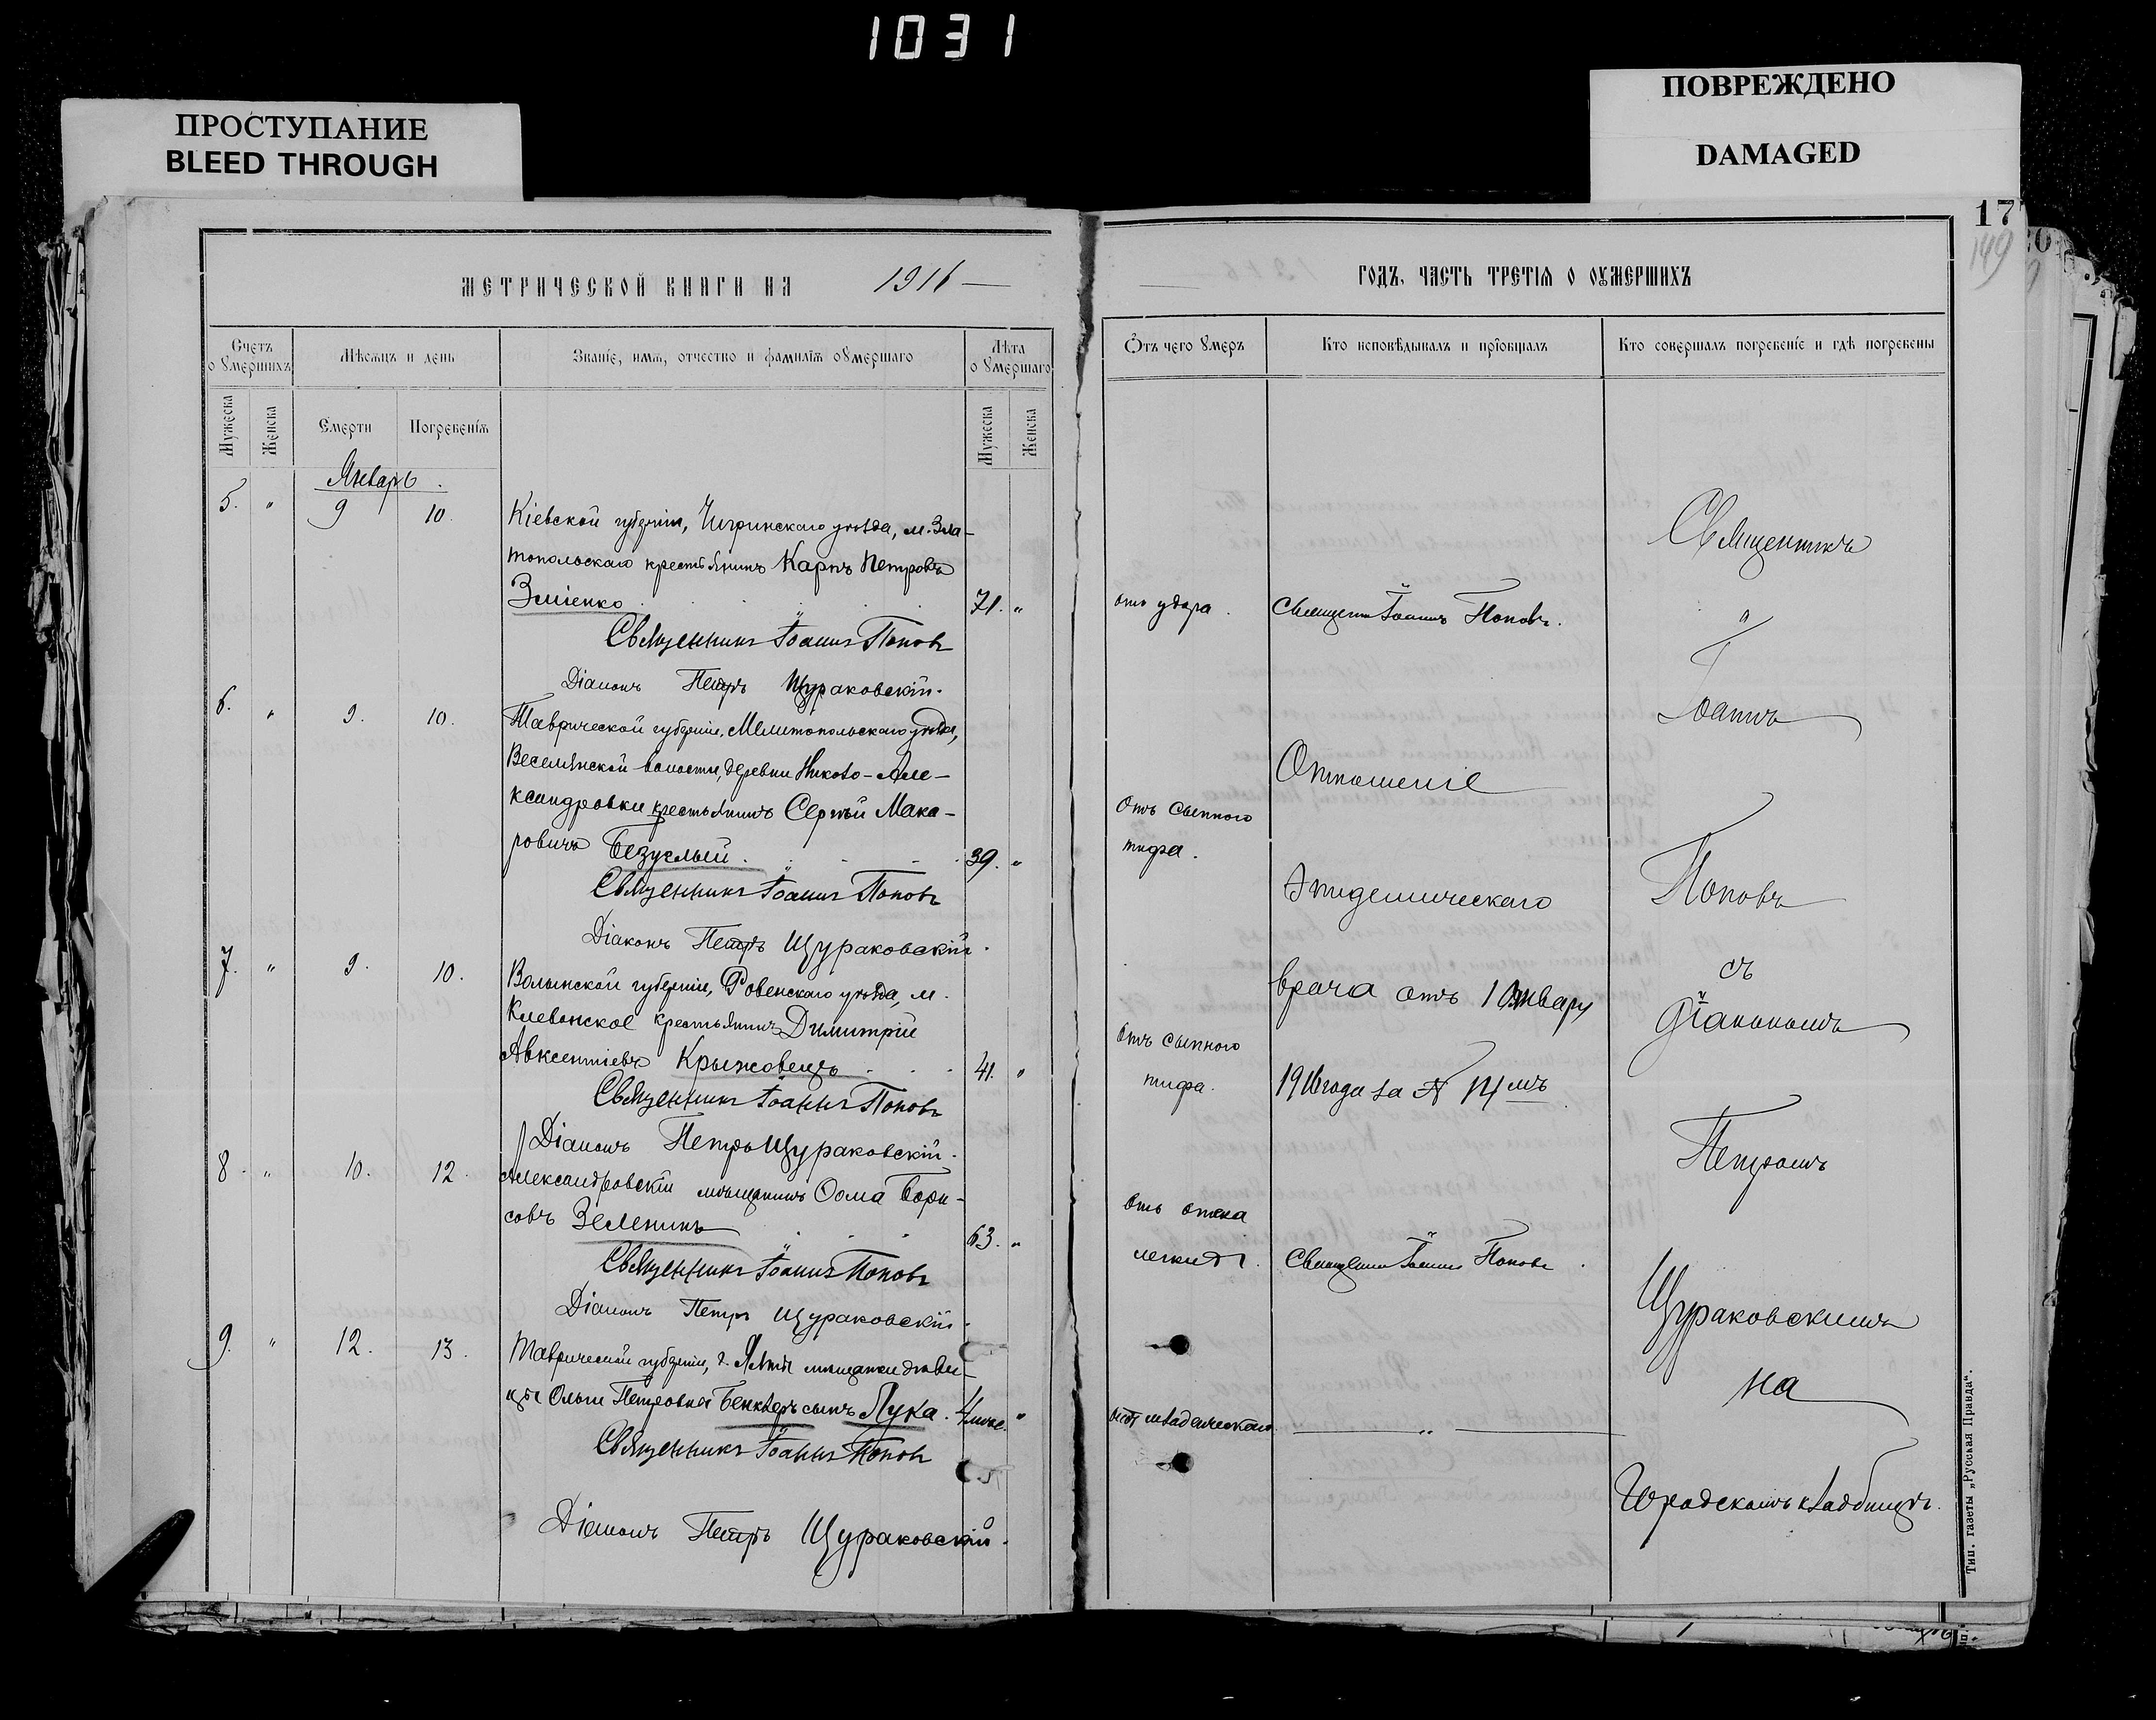 1031
ПРОСТУПАНИЕ
BLEED THROUGH
ПОВРЕЖДЕНО
DAMAGED
17
149
МЕТРИЧЕСКОЙ КНИГИ НА 1916
Счетъ оумершихъ
Мѣсяцъ и день
Званіе, имя, отчество и фамилія оумершаго
Лѣта оумершаго
Мужеска
Женска
Смерти
Погребенія
Мужеска
Женска
Январь.
5. " 9 10.
Кіевской губерніи, Чигринскаго уѣзда, м. Зла-
топольскаго крестьянинъ Карпъ Петровъ
Зміенко 71. "
Священникъ Іоаннъ Поповъ
Діаконъ Петръ Щураковскій.
6. " 9. 10.
Таврической губерніи, Мелитопольскаго уѣзда,
Веселянской волости, деревни Николо-Але-
ксандровки крестьянинъ Сергѣй Мака-
ровичъ Безуглый. 39. "
Священникъ Іоаннъ Поповъ
Діаконъ Петръ Щураковскій.
7. " 9. 10.
Волынской губерніи, Ровенскаго уѣзда, м.
Клеванское крестьянинъ Димитрій
Авксентіевъ Крыжовецъ 41. "
Священникъ Іоаннъ Поповъ
Діаконъ Петръ Щураковскій.
8. " 10. 12.
Александровскій мѣщанинъ Ѳома Бори-
совъ Зеленинъ 63. "
Священникъ Іоаннъ Поповъ
Діаконъ Петръ Щураковскій.
9. " 12. 13.
Таврической губерніи, г. Ялты мѣщанки дѣви-
цы Ольги Петровны сынъ Лука. 4 "
Священникъ Іоаннъ Поповъ
Діаконъ Петръ Щураковскій.
ГОДЪ, ЧАСТЬ ТРЕТІЯ О ОУМЕРШИХЪ
Отъ чего оумеръ
Кто исповѣдывалъ и пріобщалъ
Кто совершалъ погребеніе и гдѣ погребены
отъ удара.
Священ. Іоаннъ Поповъ.
Отъ сыпного
тифа.
Отношеніе
Эпидемическаго
врача отъ 10 январу
1916 года за № 14 мъ
Отъ сыпного
тифа.
Отъ отека
легкихъ.
Священ. Іоаннъ Поповъ.
младенческаго
"
Священникъ
"
Іоаннъ
Поповъ
съ
Діакономъ
Петромъ
Щураковскимъ
на
Городскомъ кладбищѣ.
Тип. газеты „Русская Правда“.